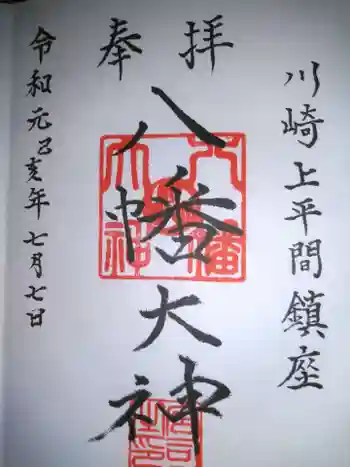 川崎上平間鎮座
奉拝
八幡大神
令和元己亥年七月七日
八幡
大神